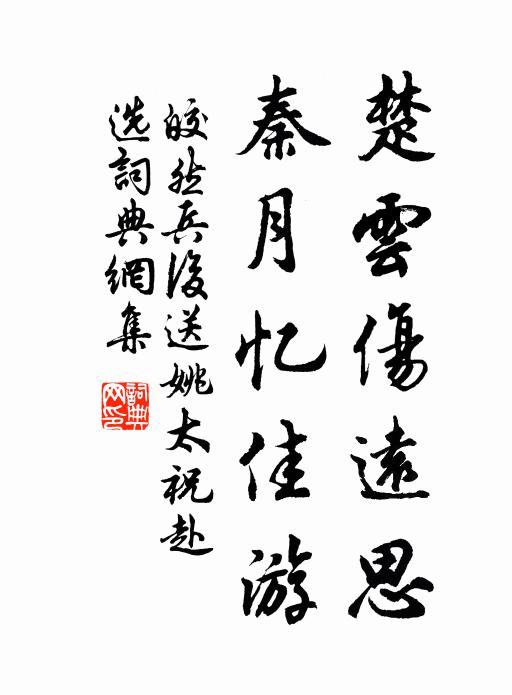 楚雲傷遠思
秦月忆佳游
皎然兵後送姚太祝赴
选詞典網集
詞典
网印